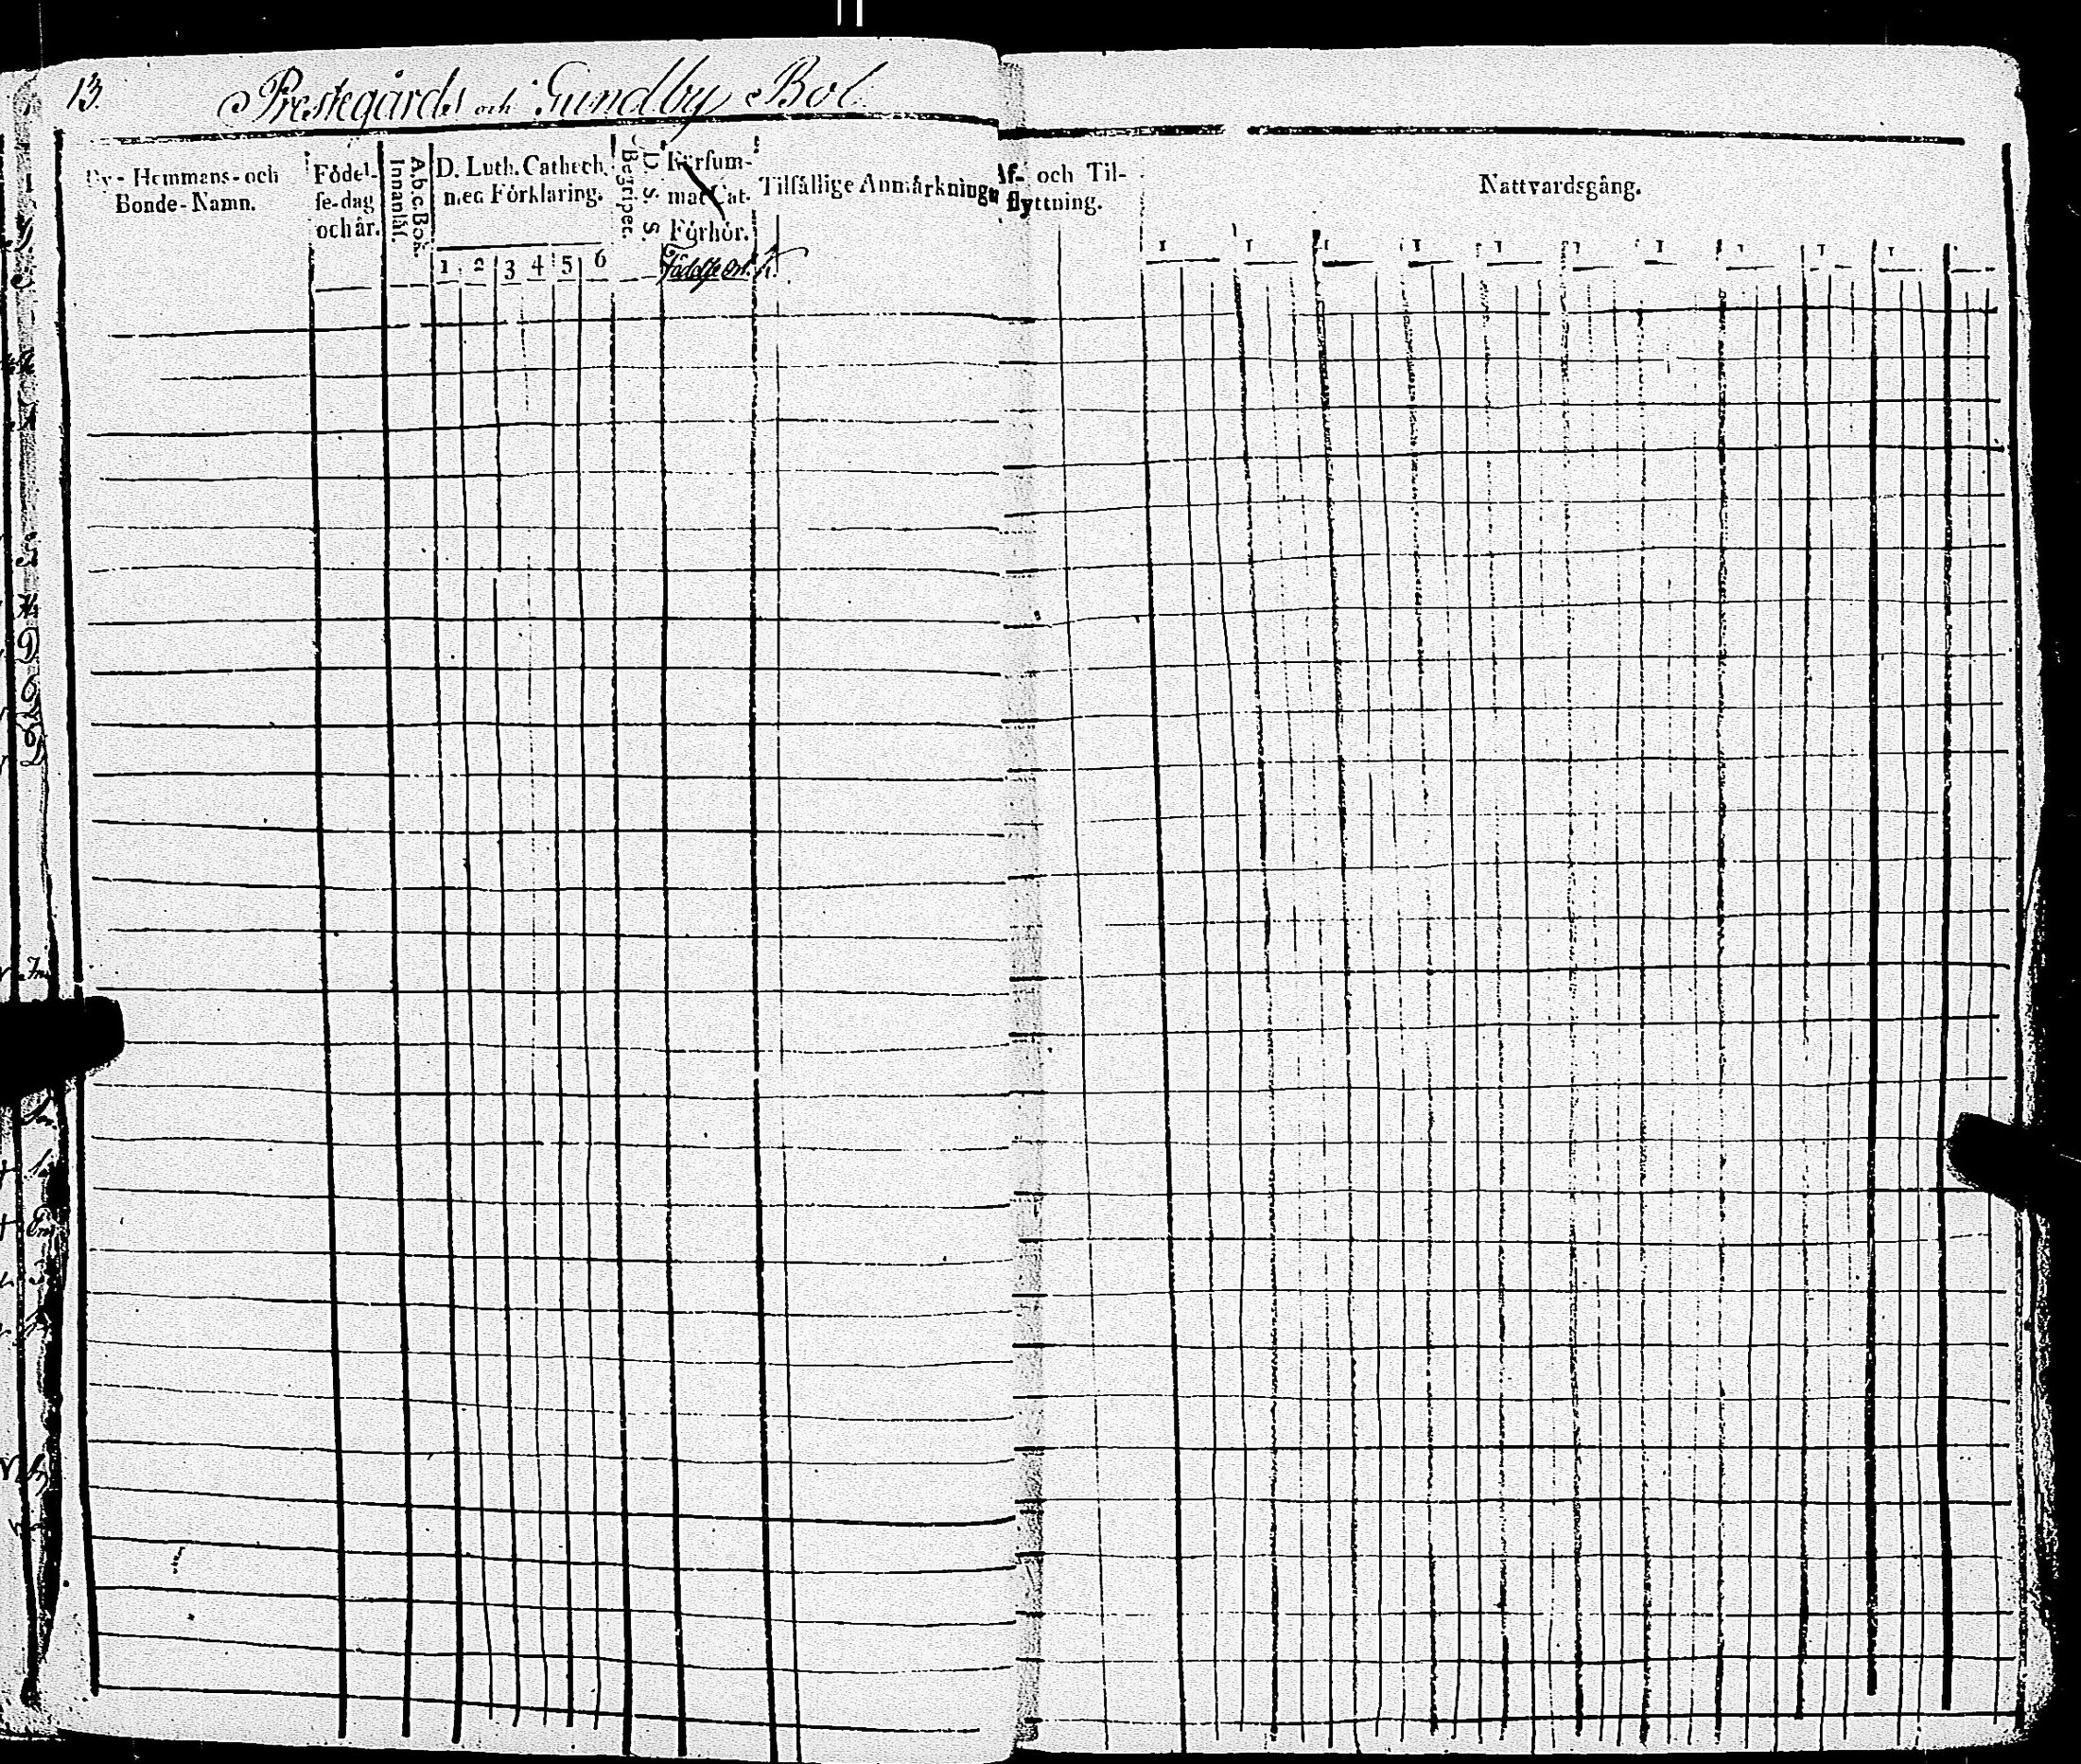 13.
Prestegårds och Gundby Bol
By- Hemmans- och
Bonde-Namn.
Födel-
se-dag
och år.
A.b.c.Bok.
Innanläs.
D. Luth. Cathech.
med Förklaring.
1 2 3 4 5 6
Begriper.
D. S. S. S.
Försum-
mat Cat.
Förhör.
Födelse Ort.
Tilfällige Anmärkningar
Af- och Til-
flyttning.
Nattvardsgång.
1 1 1 1 1 1 1 1 1 1